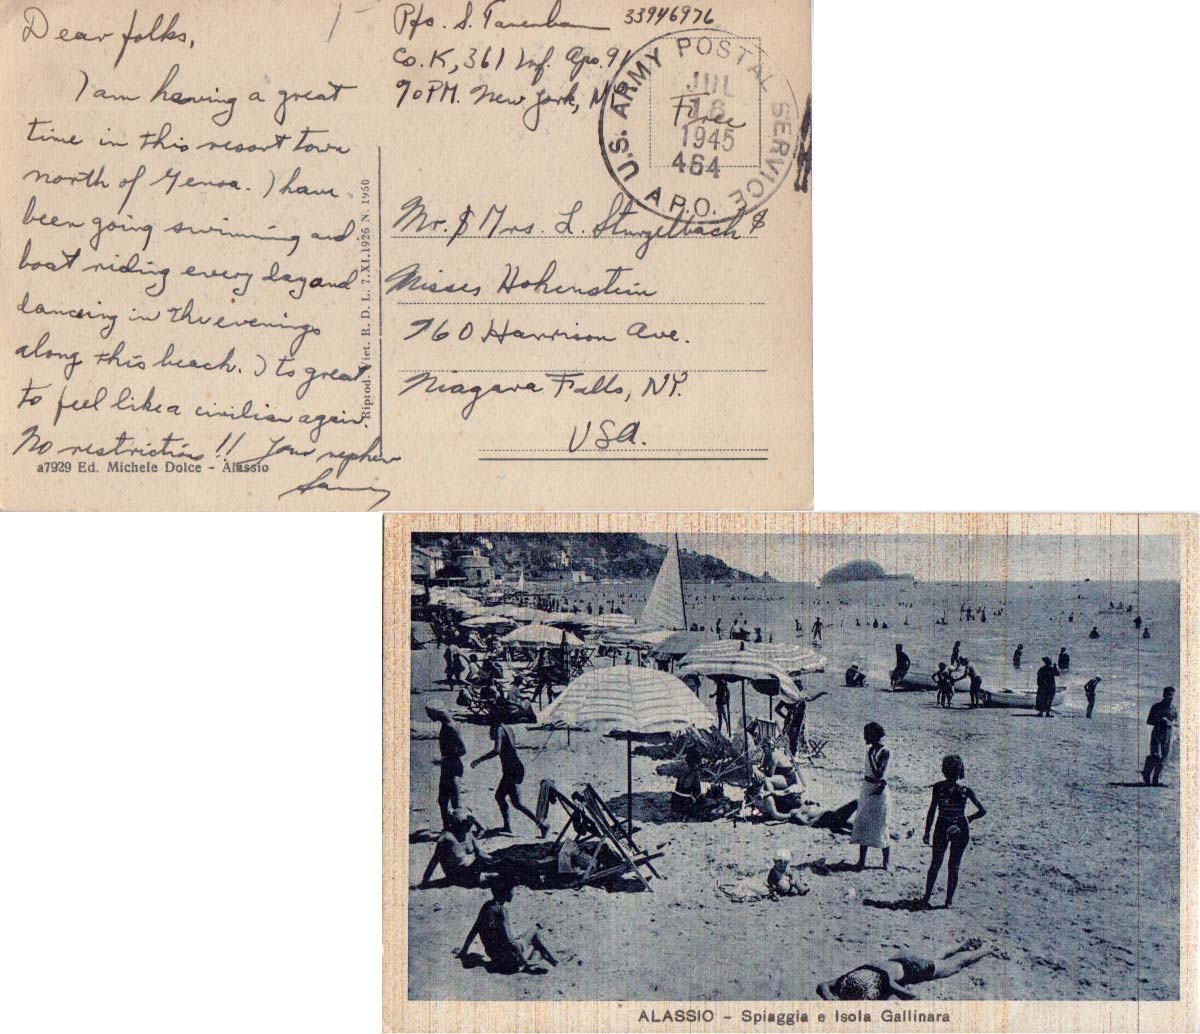 Dear folks,
I am having a great
time in this resort town
north of Genoa. I have
been going swimming and
boat riding every day and
dancing in the evenings
along this beach. Its great
to feel like a civilian again.
No restrictions!! Your nephew
a7929 Ed. Michele Dolce - Alassio
Riprod. Viet. R. D. L. 7.XI.1926 N. 1950
Pfc. S. 33946976
Co. K, 361 Inf. Apo. 91
℅ PM. New York, N
Free
U.S. ARMY POSTAL SERVICE
JUL
16
1945
464
A.P.O.
Mr. & Mrs. L. Sturzelbach &
Misses Hohenstein
760 Harrison Ave.
Niagara Falls, NY.
USA.
ALASSIO - Spiaggia e Isola Gallinara